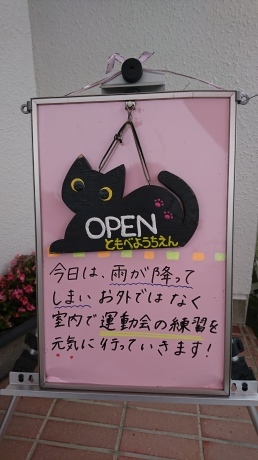 OPEN
ともべようちえん
今日は、雨が降って
しまいお外ではなく
室内で運動会の練習を
元気に行っていきます!